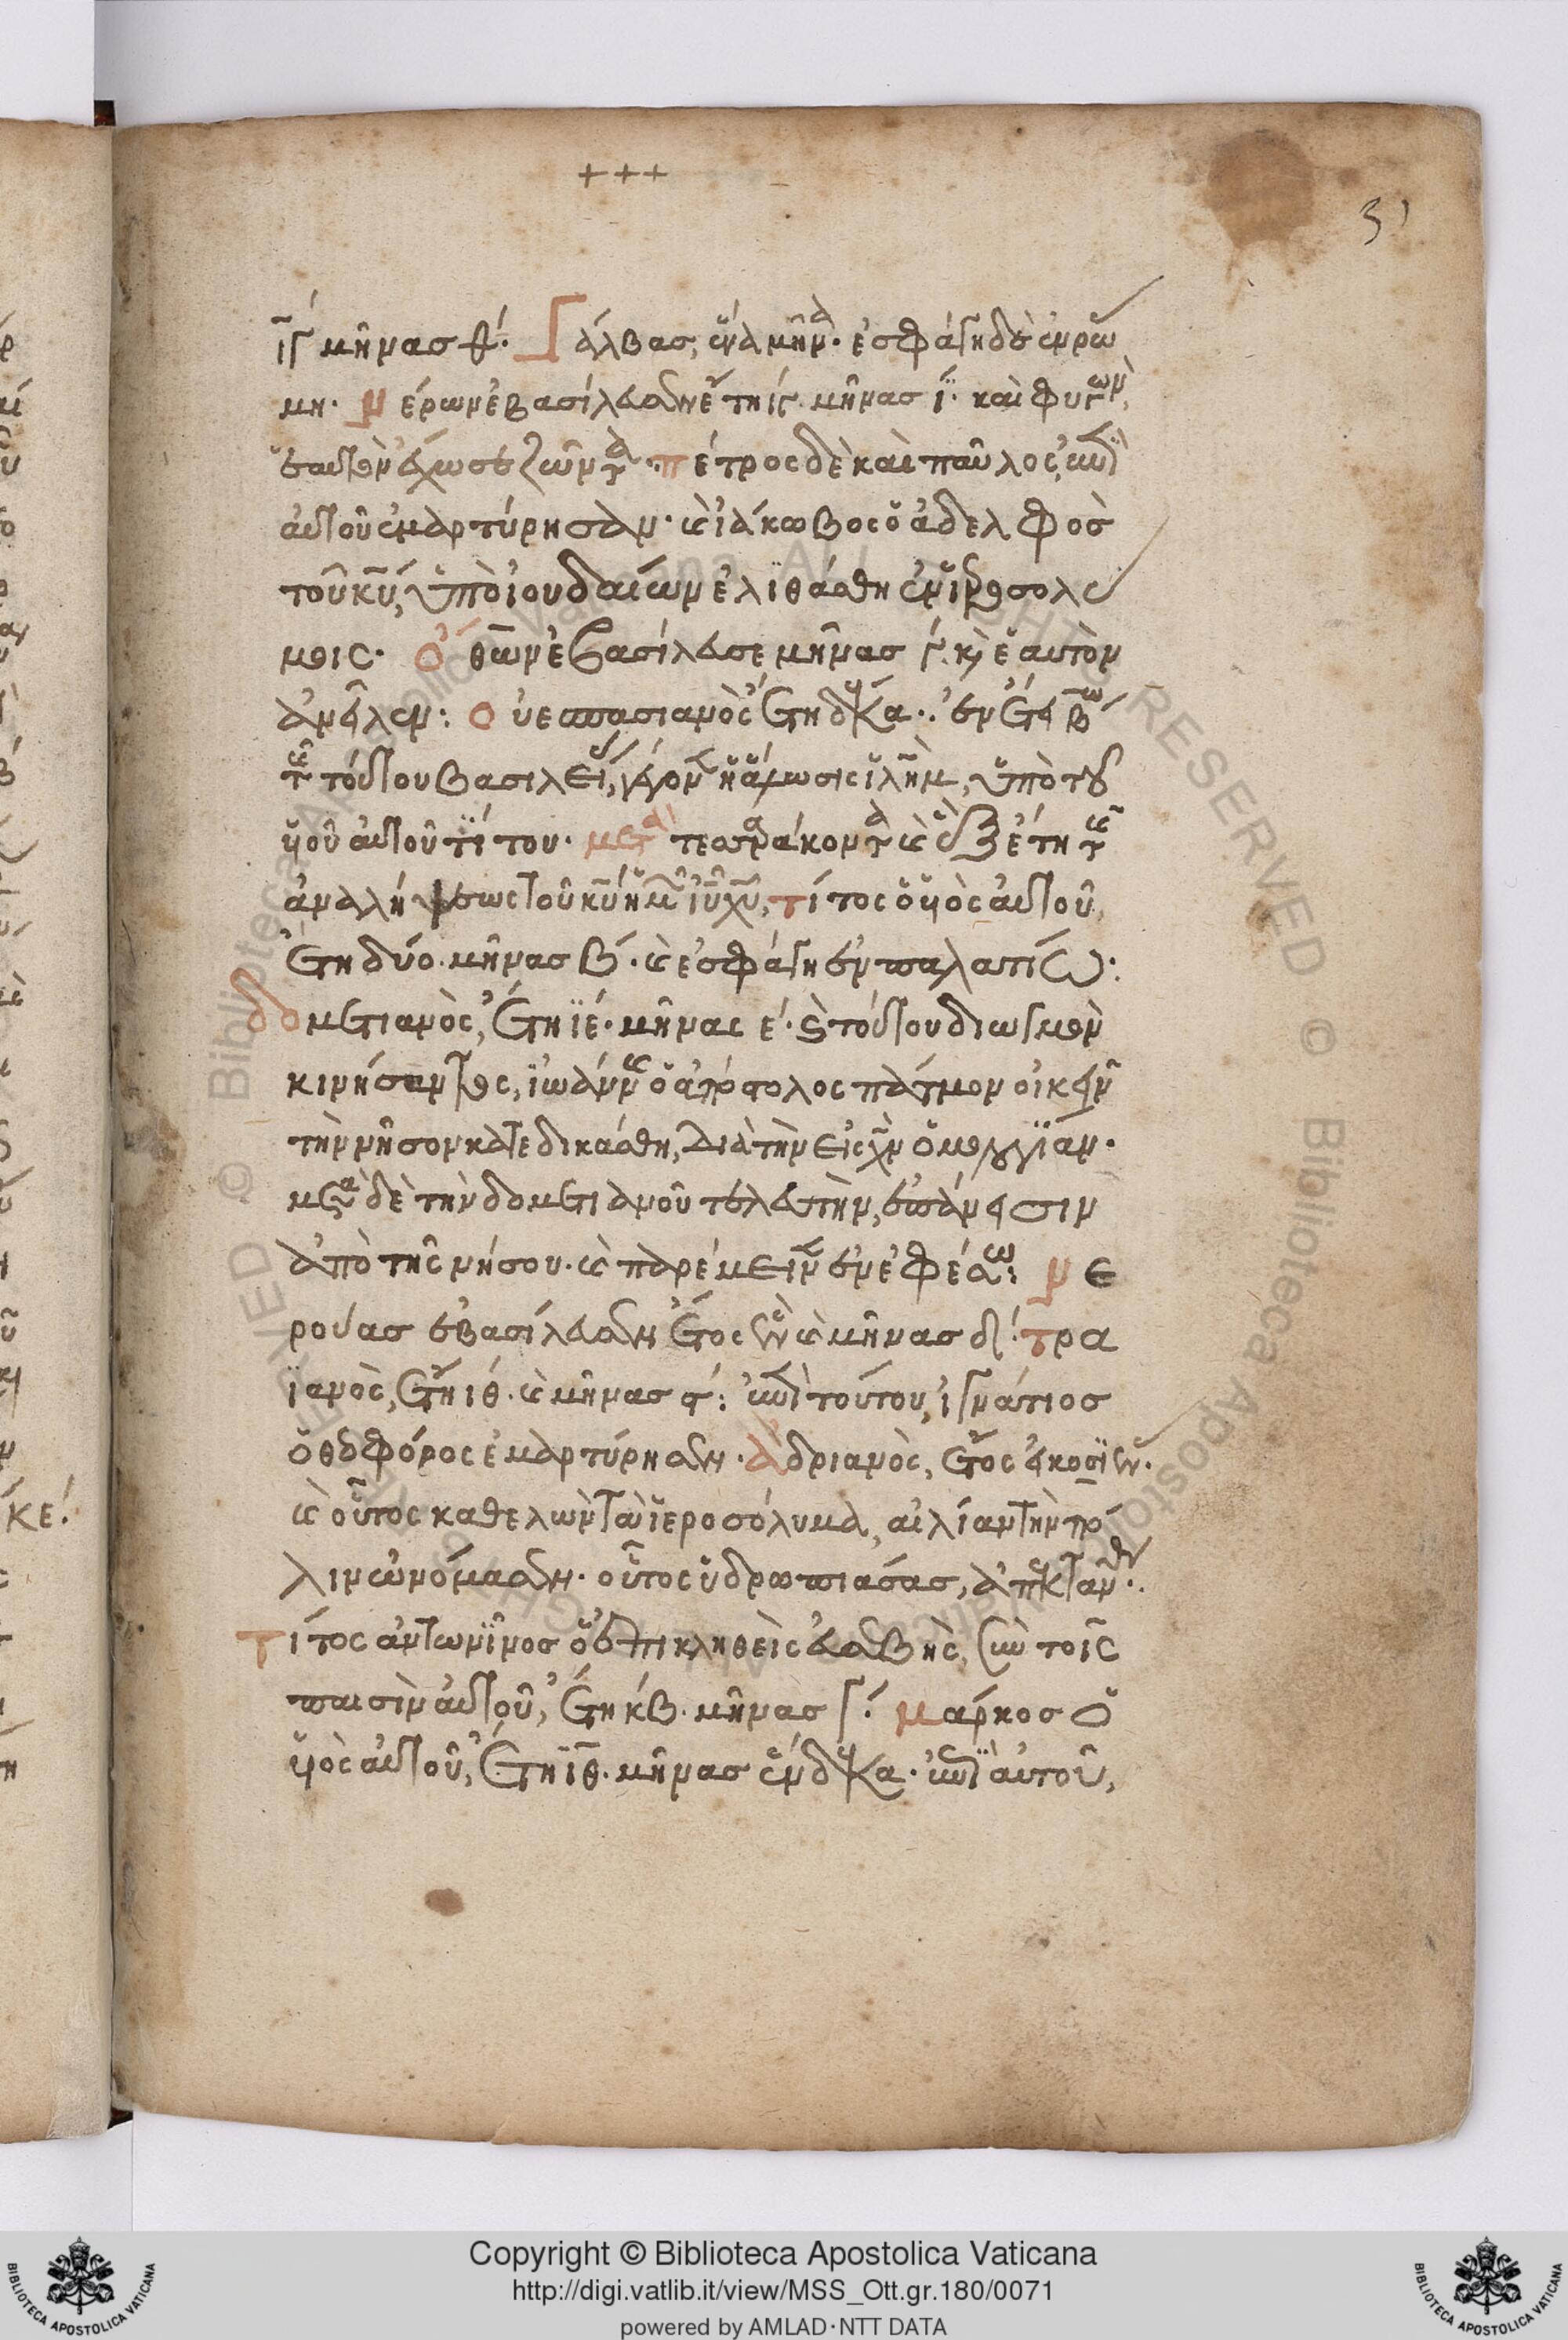 +++
31
ιγ μῆνας θ΄. Γάλβας, ἕνα μῆνα. ἐσφάγη δὲ ἐν ρώ
μη. Νέρων ἐβασίλευσεν ἔτη ιγ. μῆνας ι. καὶ φυγὼν,
ἑαυτὸν ἔχωσε ζῶντα. πέτρος δὲ καὶ παῦλος, ἐπὶ
αὐτοῦ ἐμαρτύρησαν. καὶ ἰάκωβος ὁ ἀδελφὸς
τοῦ κυ, ὑπὸ ἰουδαίων ἐλιθάσθη ἐν ἱεροσολύ
μοις. Ὄθων ἐβασίλευσε μῆνας γ. καὶ ἑαυτὸν
ἀνεῖλεν: Οὐεσπασιανὸς ἔτη δέκα. ἐν ἔτει β ω
τῆς τούτου βασιλείας, γέγονεν ἡ ἅλωσις ιλημ, ὑπὸ τοῦ
υἱοῦ αὐτοῦ τίτου. μετὰ τεσσαράκοντα καὶ ἔτη τῆς
ἀναλήψεως τοῦ κυ ἡμῶν ιυ χυ, τίτος ὁ υἱὸς αὐτοῦ,
ἔτη δύο. μῆνας β. καὶ ἐσφάγη ἐν παλατίω:
δομετιανὸς, ἔτη ιε. μῆνας ε. ὑπὸ τούτου διωγμὸν
κινήσαντος, ἰωάννης ὁ ἀπόστολος πάτμον οἰκεῖν
τὴν νῆσον κατεδικάσθη, διὰ τὴν εἰς χν ὁμολογίαν.
μετὰ δὲ τὴν δομετιανοῦ τελευτὴν, ἐπάνεισιν
ἀπὸ τῆς νήσου. καὶ παρέμεινεν ἐν ἐφέσω: Νε
ρούας ἐβασίλευσεν ἔτος ἓν καὶ μῆνας δ. τρα
ϊανὸς, ἔτη ιθ. καὶ μῆνας ϛ: ἐπὶ τούτου, ἰγνάτιος
ὁ θεοφόρος ἐμαρτύρησεν. ἀδριανὸς, ἔτος εἰκοσιέν.
καὶ οὗτος καθελὼν τὰ ἱεροσόλυμα, αἰλίαν τὴν πό
λιν ὠνόμασεν. οὗτος ὑδρωπιάσας, ἀπέκτανθη.
τίτος ἀντωνῖνος ὁ ἐπικληθεὶς εὐσεβὴς, σὺν τοῖς
παισὶν αὐτοῦ, ἔτη κβ. μῆνας γ. μάρκος ὁ
υἱὸς αὐτοῦ, ἔτη ιθ. μῆνας ἕνδεκα. ἐπὶ αὐτοῦ,
Copyright © Biblioteca Apostolica Vaticana
http://digi.vatlib.it/view/MSS_Ott.gr.180/0071
powered by AMLAD·NTT DATA